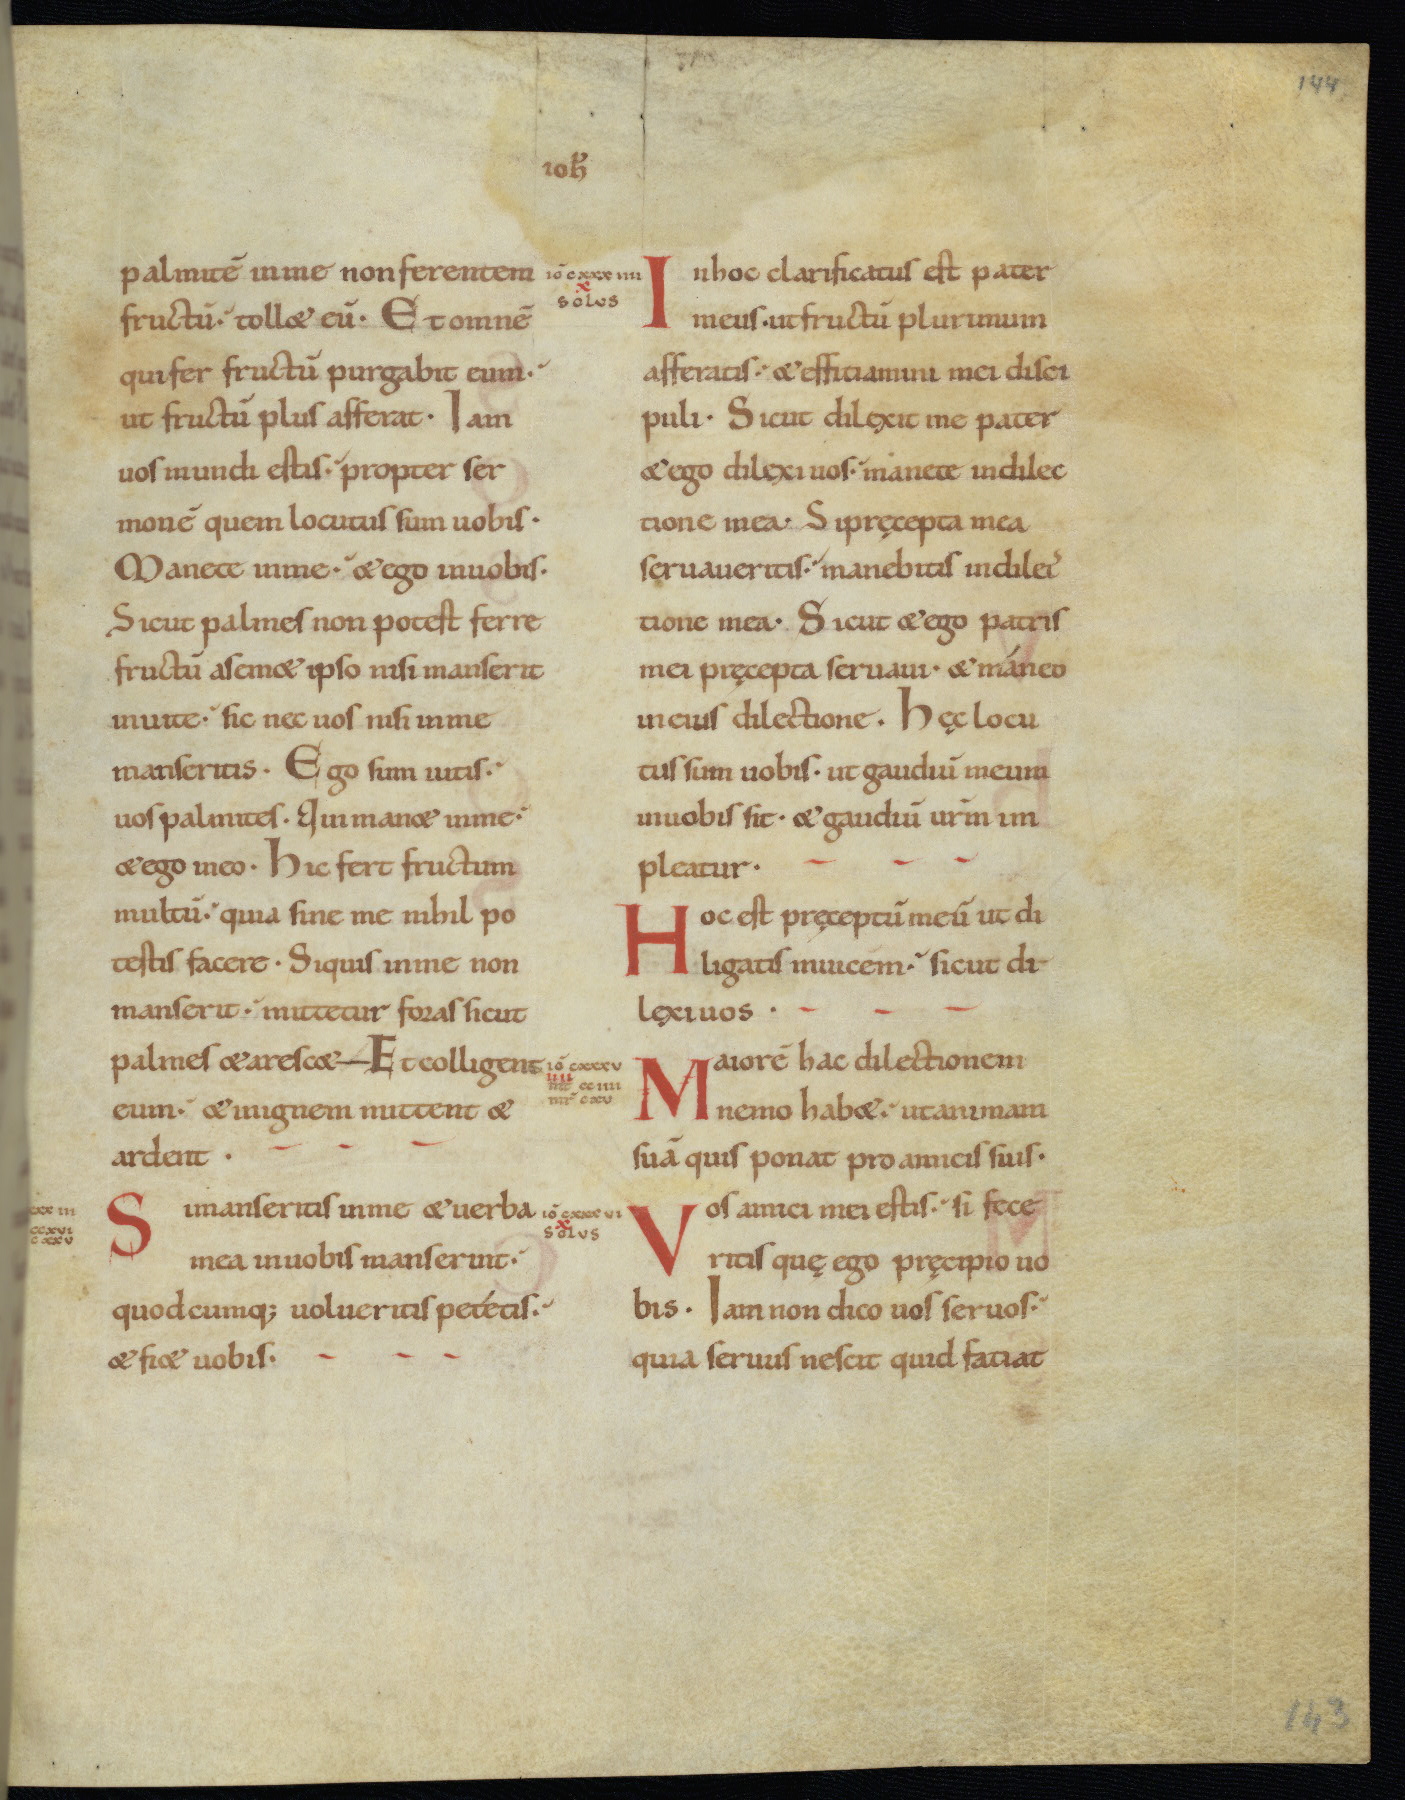 144
ioħ
palmitē in me non ferentem
fructū· tollet eū· Et omnē
qui fer fructū purgabit eum·
ut fructū plus afferat· Iam
uos mundi estis· propter ser
monē quem locutus sum uobis·
Manete in me· et ego in uobis·
Sicut palmes non potest ferre
fructū a semet ipso nisi manserit
in uite· sic nec uos nisi in me
manseritis· Ego sum uitis·
uos palmites· Qui manet in me·
et ego in eo· hic fert fructum
multū· quia sine me nihil po
testis facere· Siquis in me non
manserit· mittetur foras sicut
palmes et arescet—Et colligent
eum· et in ignem mittent et
ardent ·
Si manseritis in me et uerba
mea in uobis manserint·
quodcumq; uolueritis petétis·
et fiet uobis·
iō cxxx iiii
x
solus
iō cxxxv
iiii
mt cc iiii
mr cxv
iō cxxx vi
x
solus
In hoc clarificatus est pater
meus· ut fructū plurimum
afferatis· et efficiamini mei disci
puli· Sicut dilęxit me pater
et ego dilęxi uos· manete in dilec
tione mea· Si pręcepta mea
seruaueritis· manebitis in dilec
tione mea· Sicut et ego patris
mei pręcepta seruaui· et máneo
in eius dilectione· hęc locu
tus sum uobis· ut gaudiū meum
in uobis sit· et gaudiū urm̄ im
pleatur·
Hoc est pręceptū meū ut di
ligatis inuicem· sicut di
lęxi uos ·
Maiorē hac dilectionem
nemo habet· ut animam
suā quis ponat pro amicis suis·
Vos amici mei estis· si fece
ritis quę ego pręcipio uo
bis· Iam non dico uos seruos·
quia seruus nescit quid fatiat
143